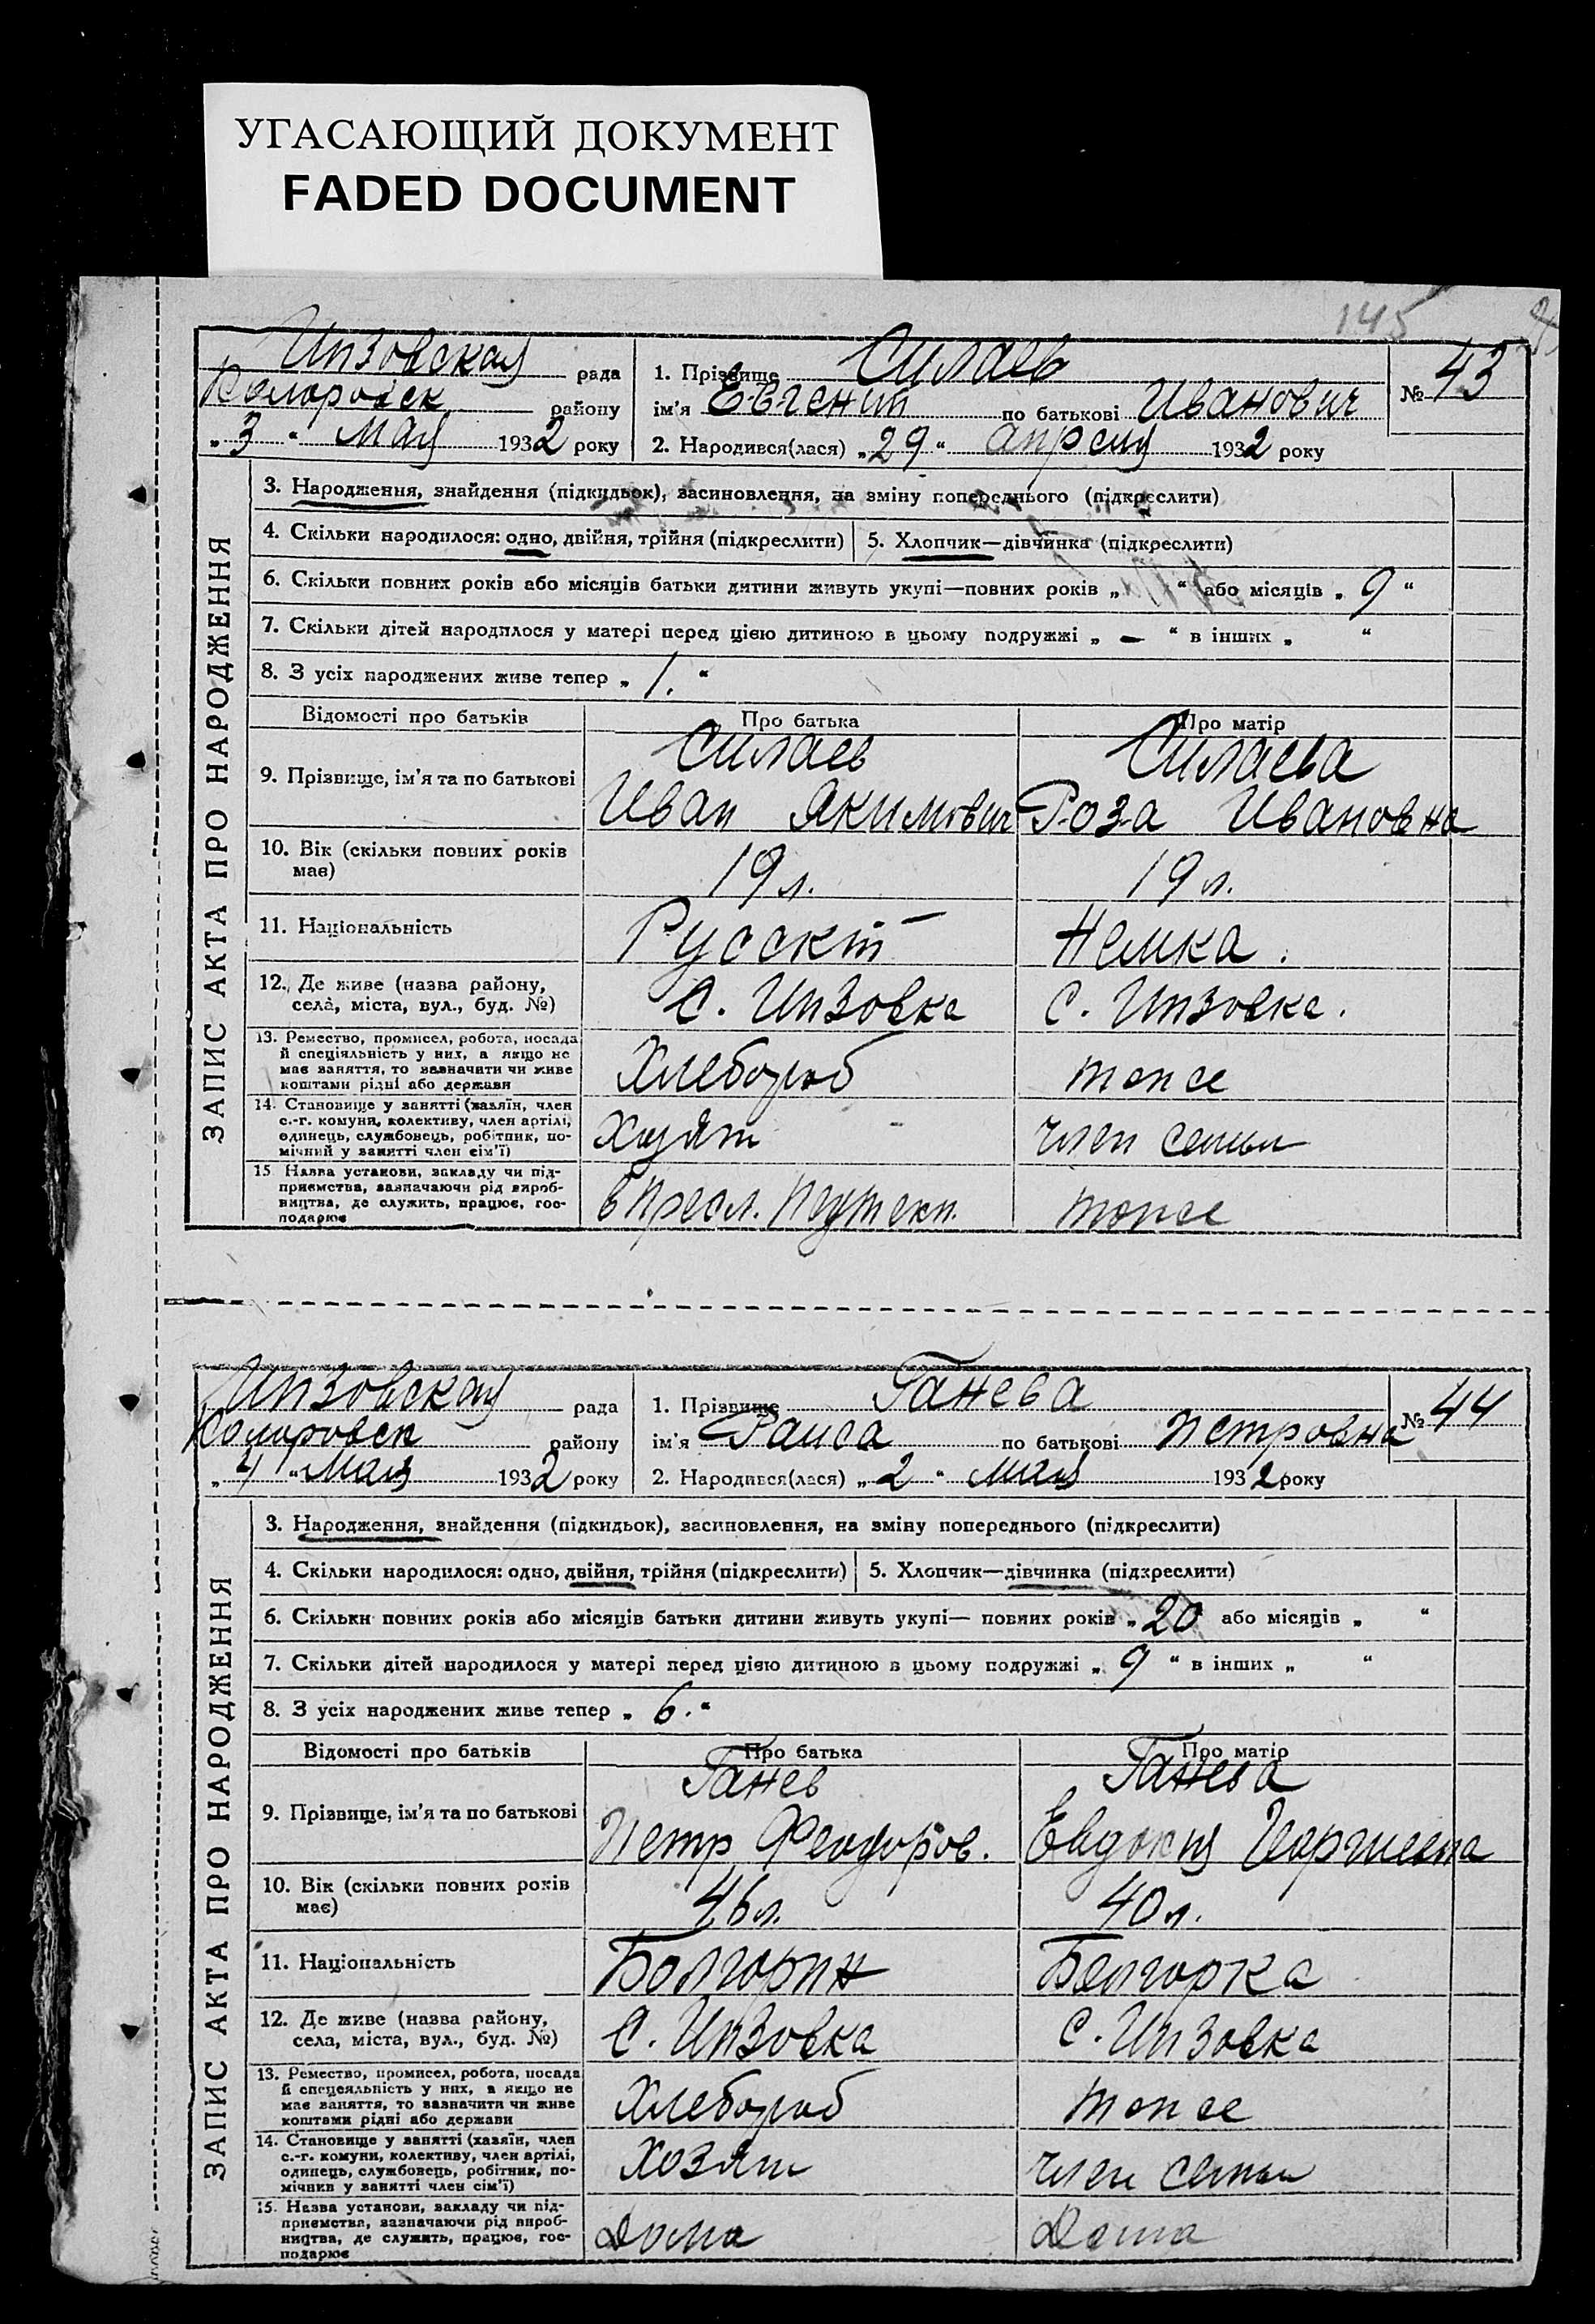 УГАСАЮЩИЙ ДОКУМЕНТ
FADED DOCUMENT
145
Инзовская рада
Коларовск району
„3“ мая 1932 року
1. Прізвище Силаев
ім’я Евгений по батькові Иванович
2. Народився(лася) „29“ апреля 1932 року
№ 43
ЗАПИС АКТА ПРО НАРОДЖЕННЯ
3. Народження, знайдення (підкидьок), засиновлення, на зміну попереднього (підкреслити)
4. Скільки народилося: одно, двійня, трійня (підкреслити) 5. Хлопчик—дівчинка (підкреслити)
6. Скільки повних років або місяців батьки дитини живуть укупі—повних років „ “ або місяців „ 9 “
7. Скільки дітей народилося у матері перед цією дитиною в цьому подружжі „ — “ в інших „ “
8. З усіх народжених живе тепер „ 1. “
Відомості про батьків Про батька Про матір
9. Прізвище, ім’я та по батькові
Силаев Силаева
Иван Якимович Роза Ивановна
10. Вік (скільки повних років
має)
19 л. 19 л.
11. Національність Русский Немка.
12. Де живе (назва району,
села, міста, вул., буд. №)
С. Инзовка С. Инзовка.
13. Ремество, промисел, робота, посада
й спеціяльність у них, а якщо не
має заняття, то зазначати чи живе
коштами рідні або держави
Хлебороб тоже
14. Становище у занятті (хазяїн, член
с.-г. комуни, колективу, член артілі,
одинець, службовець, робітник, по-
мічний у занятті член сім’ї)
Хозяин член семьи
15. Назва установи, закладу чи під-
приємства, зазначаючи рід вироб-
ництва, де служить, працює, гос-
подарює
в тоже
Инзовская рада
Коларовск району
„4“ Мая 1932 року
1. Прізвище Ганева
ім’я Раиса по батькові Петровна
2. Народився(лася) „2“ мая 1932 року
№ 44
ЗАПИС АКТА ПРО НАРОДЖЕННЯ
3. Народження, знайдення (підкидьок), засиновлення, на зміну попереднього (підкреслити)
4. Скільки народилося: одно, двійня, трійня (підкреслити) 5. Хлопчик—дівчинка (підкреслити)
6. Скільки повних років або місяців батьки дитини живуть укупі— повних років „ 20 або місяців „ “
7. Скільки дітей народилося у матері перед цією дитиною в цьому подружжі „ 9 “ в інших „ “
8. З усіх народжених живе тепер „ 6. “
Відомості про батьків Про батька Про матір
9. Прізвище, ім’я та по батькові
Ганев Ганева
Петр Феодоров. Евдокия Георгиевна
10. Вік (скільки повних років
має)
46 л. 40 л.
11. Національність Болгорин Болгорка
12. Де живе (назва району,
села, міста, вул., буд. №)
С. Инзовка С. Инзовка
13. Ремество, промисел, робота, посада
й спецеяльність у них, а якщо не
має заняття, то зазначити чи живе
коштами рідні або держави
Хлебороб тоже
14. Становище у занятті (хазяїн, член
с.-г. комуни, колективу, член артілі,
одинець, службовець, робітник, по-
мічник у занятті член сім’ї)
Хозяин член семьи
15. Назва установи, закладу чи під-
приємства, зазначаючи рід вироб-
ництва, де служить, працює, гос-
подарює
Дома Дома